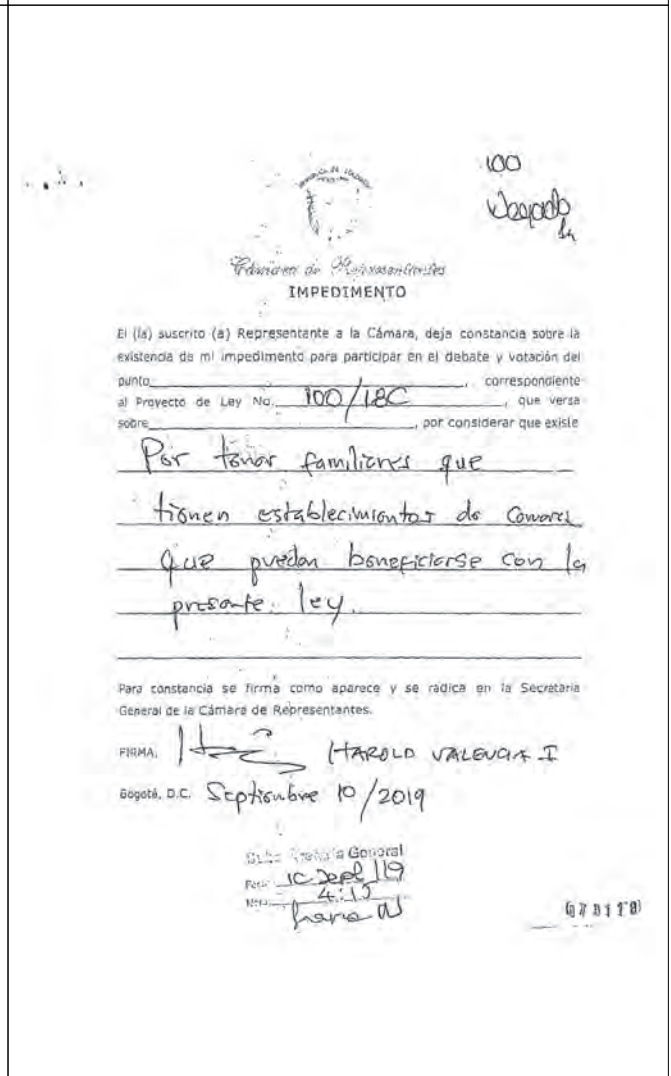 100
Negado
Cámara de Representantes
IMPEDIMENTO
El (la) suscrito (a) Representante a la Cámara, deja constancia sobre la
existencia de mi impedimento para participar en el debate y votación del
punto , correspondiente
al Proyecto de Ley No. 100/18C , que versa
sobre , por considerar que existe
Por tener familiares que
tienen establecimientos de
que puedan beneficiarse con la
presente ley.
Para constancia se firma como aparece y se radica en la Secretaria
General de la Cámara de Representantes.
FIRMA, HAROLD VALENCIA I
Bogotá, D.C. Septiembre 10/2019
General
10 Sept/19
4:15